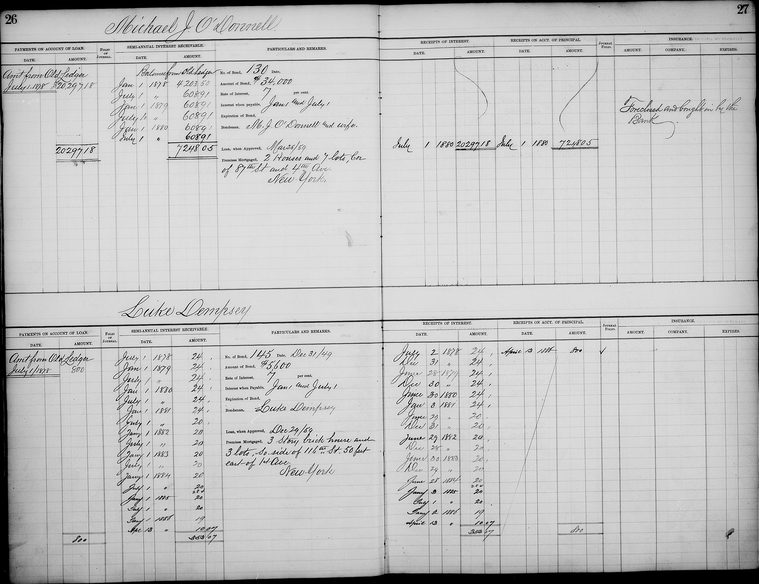 26
27
Michael J. O'Donnell
PAYMENTS ON ACCOUNT OF LOAN.
SEMI-ANNUAL INTEREST RECEIVABLE.
PARTICULARS AND REMARKS.
RECEIPTS OF INTEREST.
RECEIPTS ON ACCT. OF PRINCIPAL.
INSURANCE.
DATE. AMOUNT.
DATE. AMOUNT.
DATE. AMOUNT.
DATE. AMOUNT.
AMOUNT. COMPANY. EXPIRES.
Amt from Old Ledger
July 1 1878 $20,297 18
20297 18
Balance from Old Ledger
Jan 1 1878 4203 50
July 1 " 608 91
Jan 1 1879 608 91
July 1 " 608 91
Jan 1 1880 608 91
July 1 " 608 91
7248 05
No. of Bond, 130 Date,
Amount of Bond, $34,000
Rate of Interest, 7 per cent.
Interest when payable, Jan 1 and July 1
Expiration of Bond,
Bondsmen, M. J. O'Donnell and wife.
Loan, when Approved,
Premises Mortgaged, 2 Houses and 7 lots, Cor
of 87th St and 4th Ave
New York
July 1 1880 20297 18
July 1 1880 7248 05
Foreclosed and bought in by the
Bank
Luke Dempsey
PAYMENTS ON ACCOUNT OF LOAN.
SEMI-ANNUAL INTEREST RECEIVABLE.
PARTICULARS AND REMARKS.
RECEIPTS OF INTEREST.
RECEIPTS ON ACCT. OF PRINCIPAL.
INSURANCE.
DATE. AMOUNT.
DATE. AMOUNT.
DATE. AMOUNT.
DATE. AMOUNT.
AMOUNT. COMPANY. EXPIRES.
Amt from Old Ledger
July 1/1878 800
800
July 1 1878 24
Jan 1 1879 24
July 1 " 24
Jan 1 1880 24
July 1 " 24
Jan 1 1881 24
July 1 " 20
Jany 1 1882 20
July 1 " 20
Jany 1 1883 20
July 1 " 20
Jany 1 1884 20
July 1 " 20
Jany 1 1885 20
July 1 " 20
Jany 1 1886 19
Apr 13 " 10 07
No. of Bond, 145 Date, Dec 31/49
Amount of Bond, $5,600
Rate of Interest, 7 per cent.
Interest when Payable, Jan 1 and July 1
Expiration of Bond,
Bondsmen, Luke Dempsey
Loan, when Approved, Dec 29/49
Premises Mortgaged, 3 Story brick house and
3 lots, So. side of 116th St. 50 feet
east of 1st Ave
New York
July 2 1878 24
Dec 31 " 24
June 28 1879 24
Dec 30 " 24
June 30 1880 24
Jan 3 1881 24
June 29 " 20
Dec 31 " 20
June 29 1882 20
Dec 28 " 20
June 30 1883 20
Dec 29 " 20
June 28 1884 20
Jany 3 1885 20
July 1 " 20
Jany 2 1886 19
April 13 " 10 07
April 13 1886 800
800